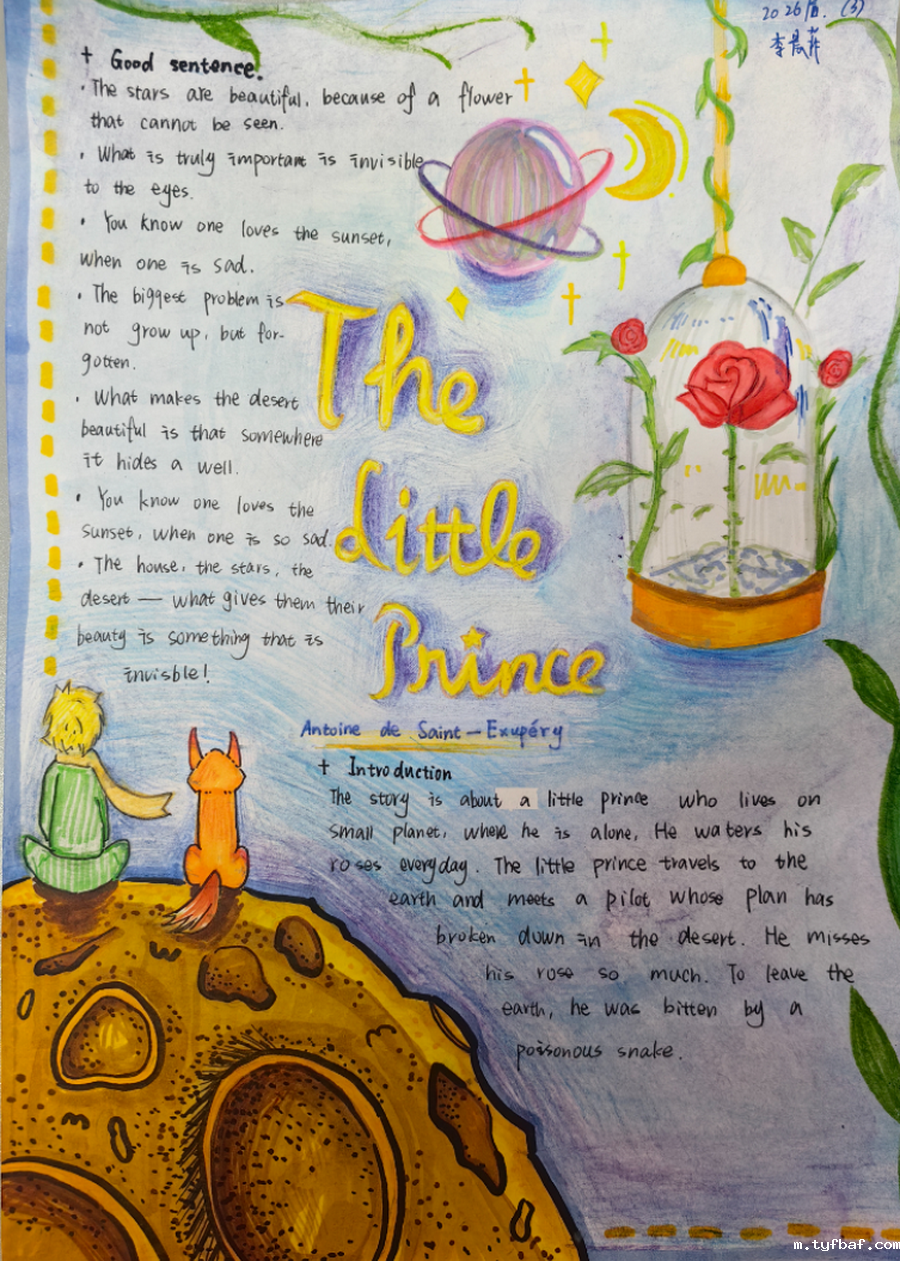 2026届. (3)
李晨菲
† Good sentence.
· The stars are beautiful, because of a flower
that cannot be seen.
· What is truly important is invisible
to the eyes.
· You know one loves the sunset,
when one is sad.
· The biggest problem is
not grow up, but for-
gotten.
· What makes the desert
beautiful is that somewhere
it hides a well.
· You know one loves the
sunset, when one is so sad.
· The house, the stars, the
desert — what gives them their
beauty is something that is
invisble!
The
Little
Prince
Antoine de Saint-Exupéry
† Introduction
The story is about a little prince who lives on
small planet, where he is alone, He waters his
roses everyday. The little prince travels to the
earth and meets a pilot whose plan has
broken down in the desert. He misses
his rose so much. To leave the
earth, he was bitten by a
poisonous snake.
m.tyfbaf.com